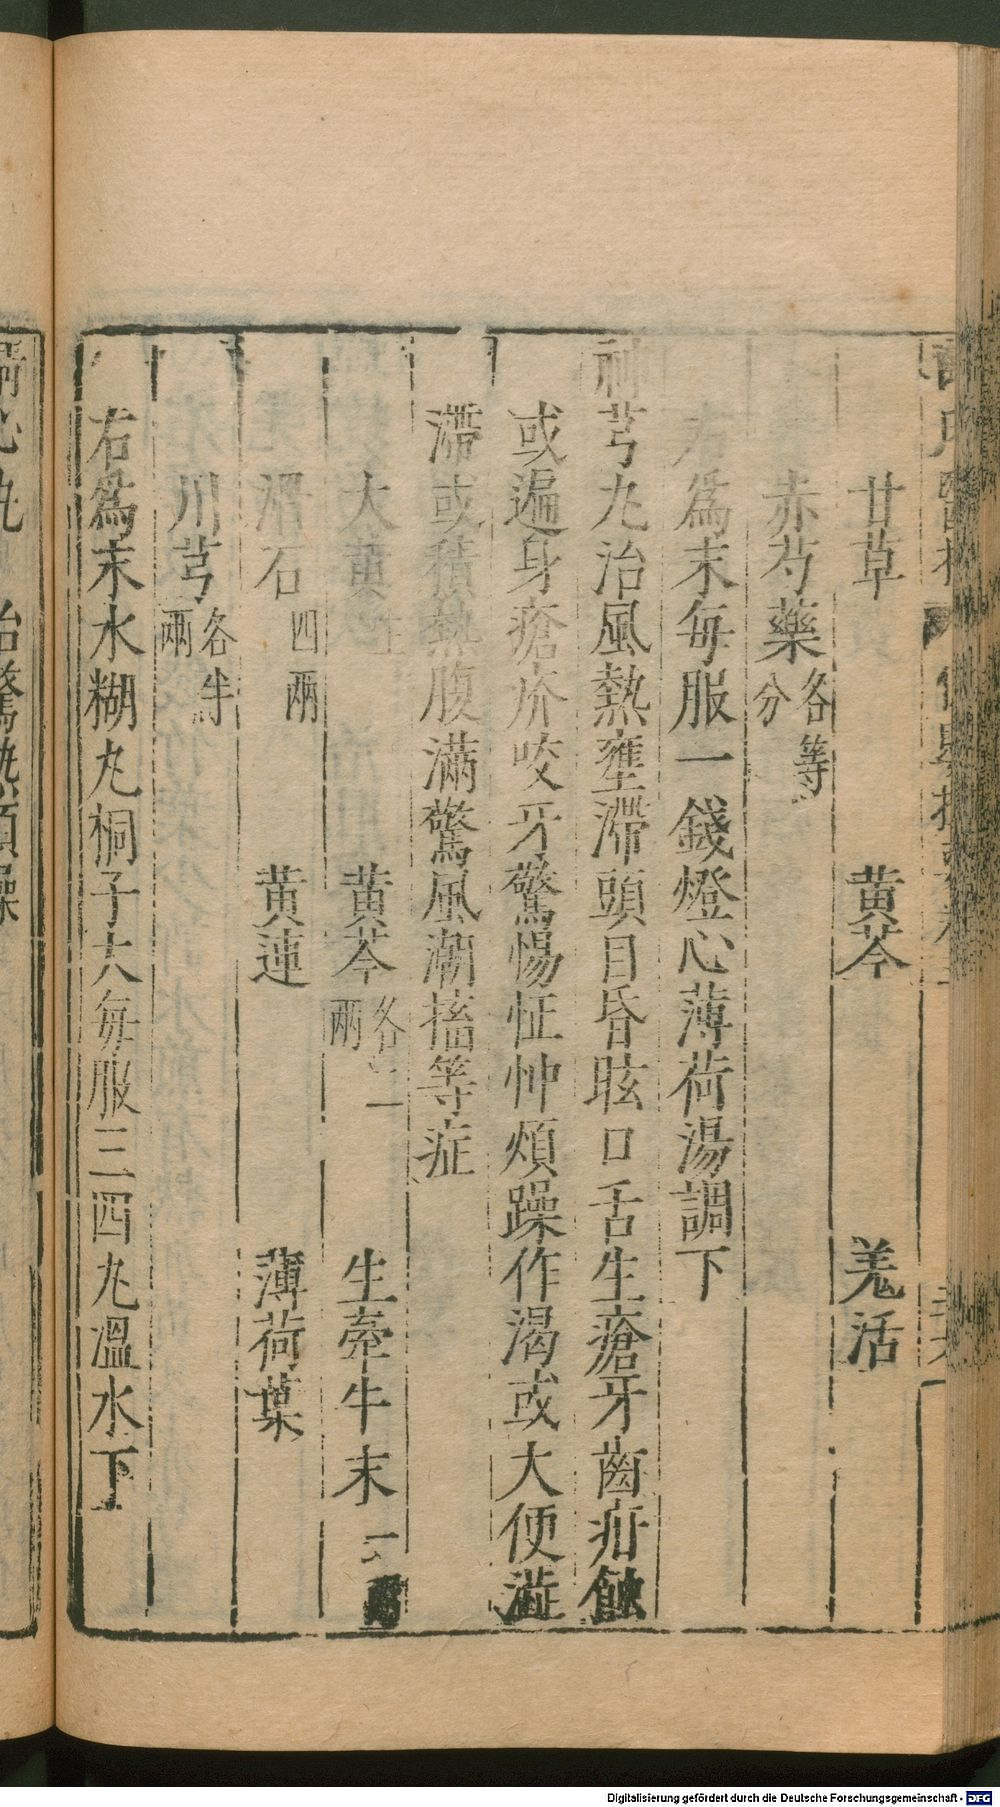 甘草 黄芩 羗活
赤芍藥各等分
右爲末每服一錢燈心薄荷湯調下
神芎丸治風熱壅滯頭目昏眩口舌生瘡牙齒疳蝕
或遍身瘡疥咬牙驚惕怔忡煩躁作渴或大便澁
滯或積熱腹滿驚風潮搐等症
大黄生 黄芩各二兩 生牽牛末二
滑石四兩 黄連 薄荷葉
川芎各半兩
右爲末水糊丸桐子大每服三四丸溫水下
丸 治驚熱煩躁
Digitalisierung gefördert durch die Deutsche Forschungsgemeinschaft - DFG